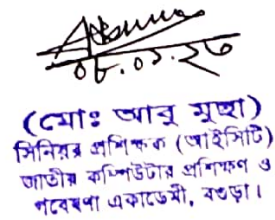 ০৮.০১.২৩
(মোঃ আবু মুছা)
সিনিয়র প্রশিক্ষক (আইসিটি)
জাতীয় কম্পিউটার প্রশিক্ষণ ও
গবেষণা একাডেমী, বগুড়া।